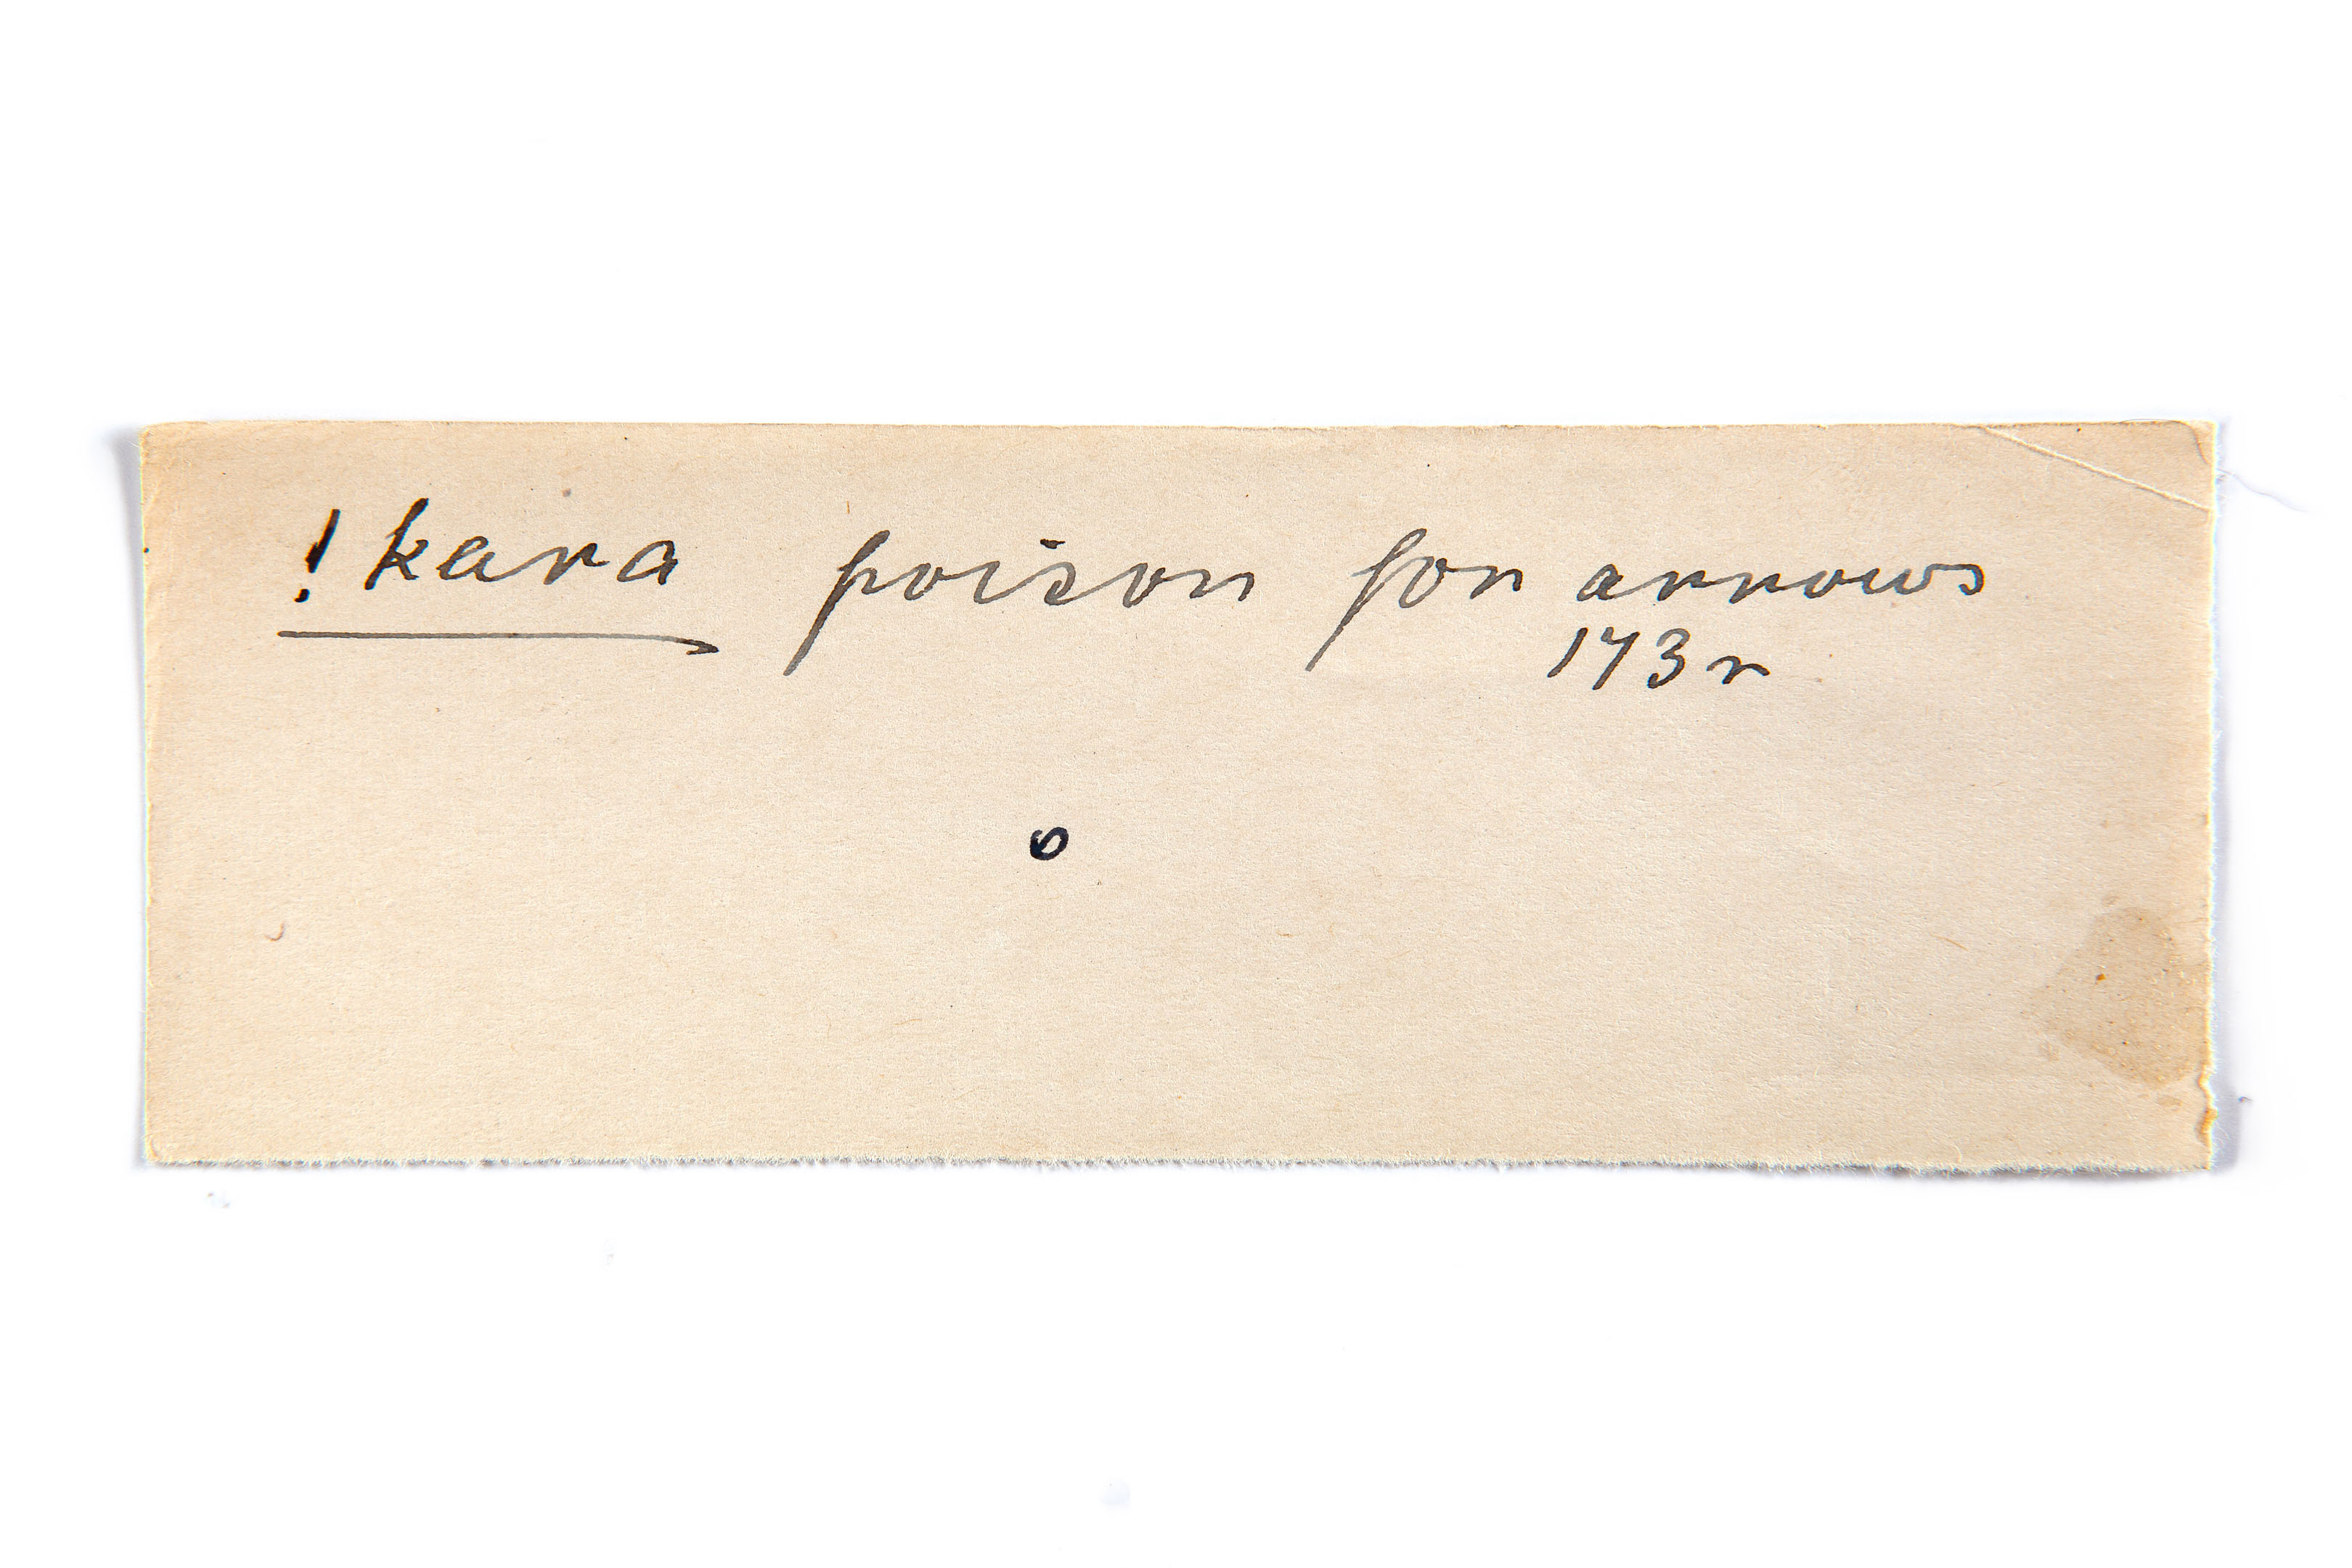 ! kara poison for arrows
173 r
o